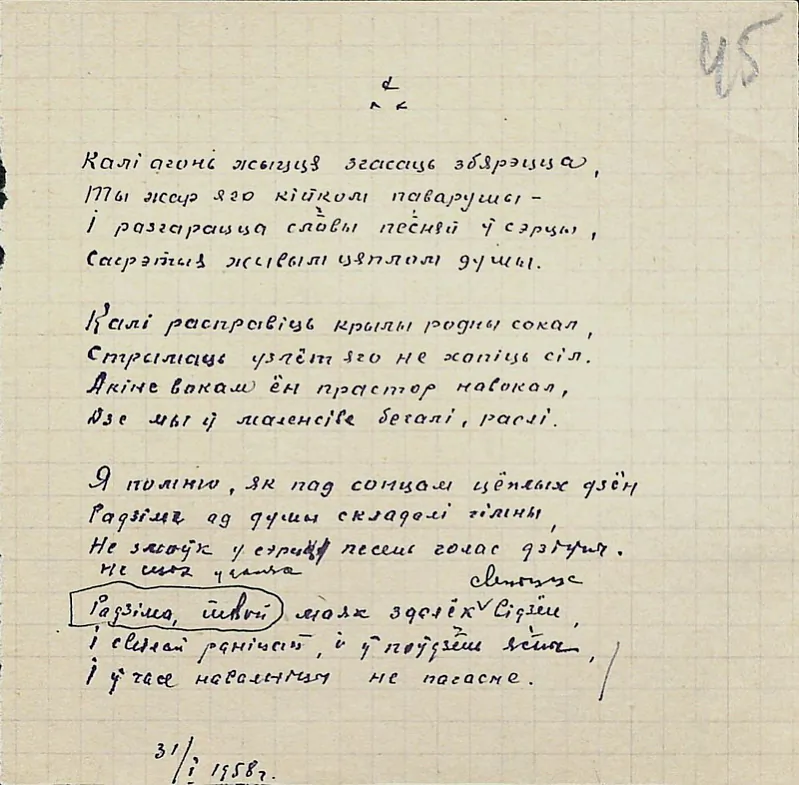 45
* * *
Калі агонь жыцця згасаць збярэцца,
Ты жар яго кійком паварушы –
І разгарацца словы песняй ў сэрцы,
Сагрэтыя жывым цяплом душы.
Калі расправіць крылы родны сокал,
Стрымаць узлёт яго не хопіць сіл.
Акіне вокам ён прастор навокал,
Дзе мы ў маленсіве бегалі, раслі.
Я помню, як пад сонцам цёплых дзён
Радзіме ад душы складалі гімны,
Не змоўк у сэрцы песень голас дзіўны.
Не
Радзіма, твой маяк здалёк відзён,
І світлай раніцай, і ў поўдзень ясны,
І ў часе навальніцы не пагасне.
31/I 1958г.